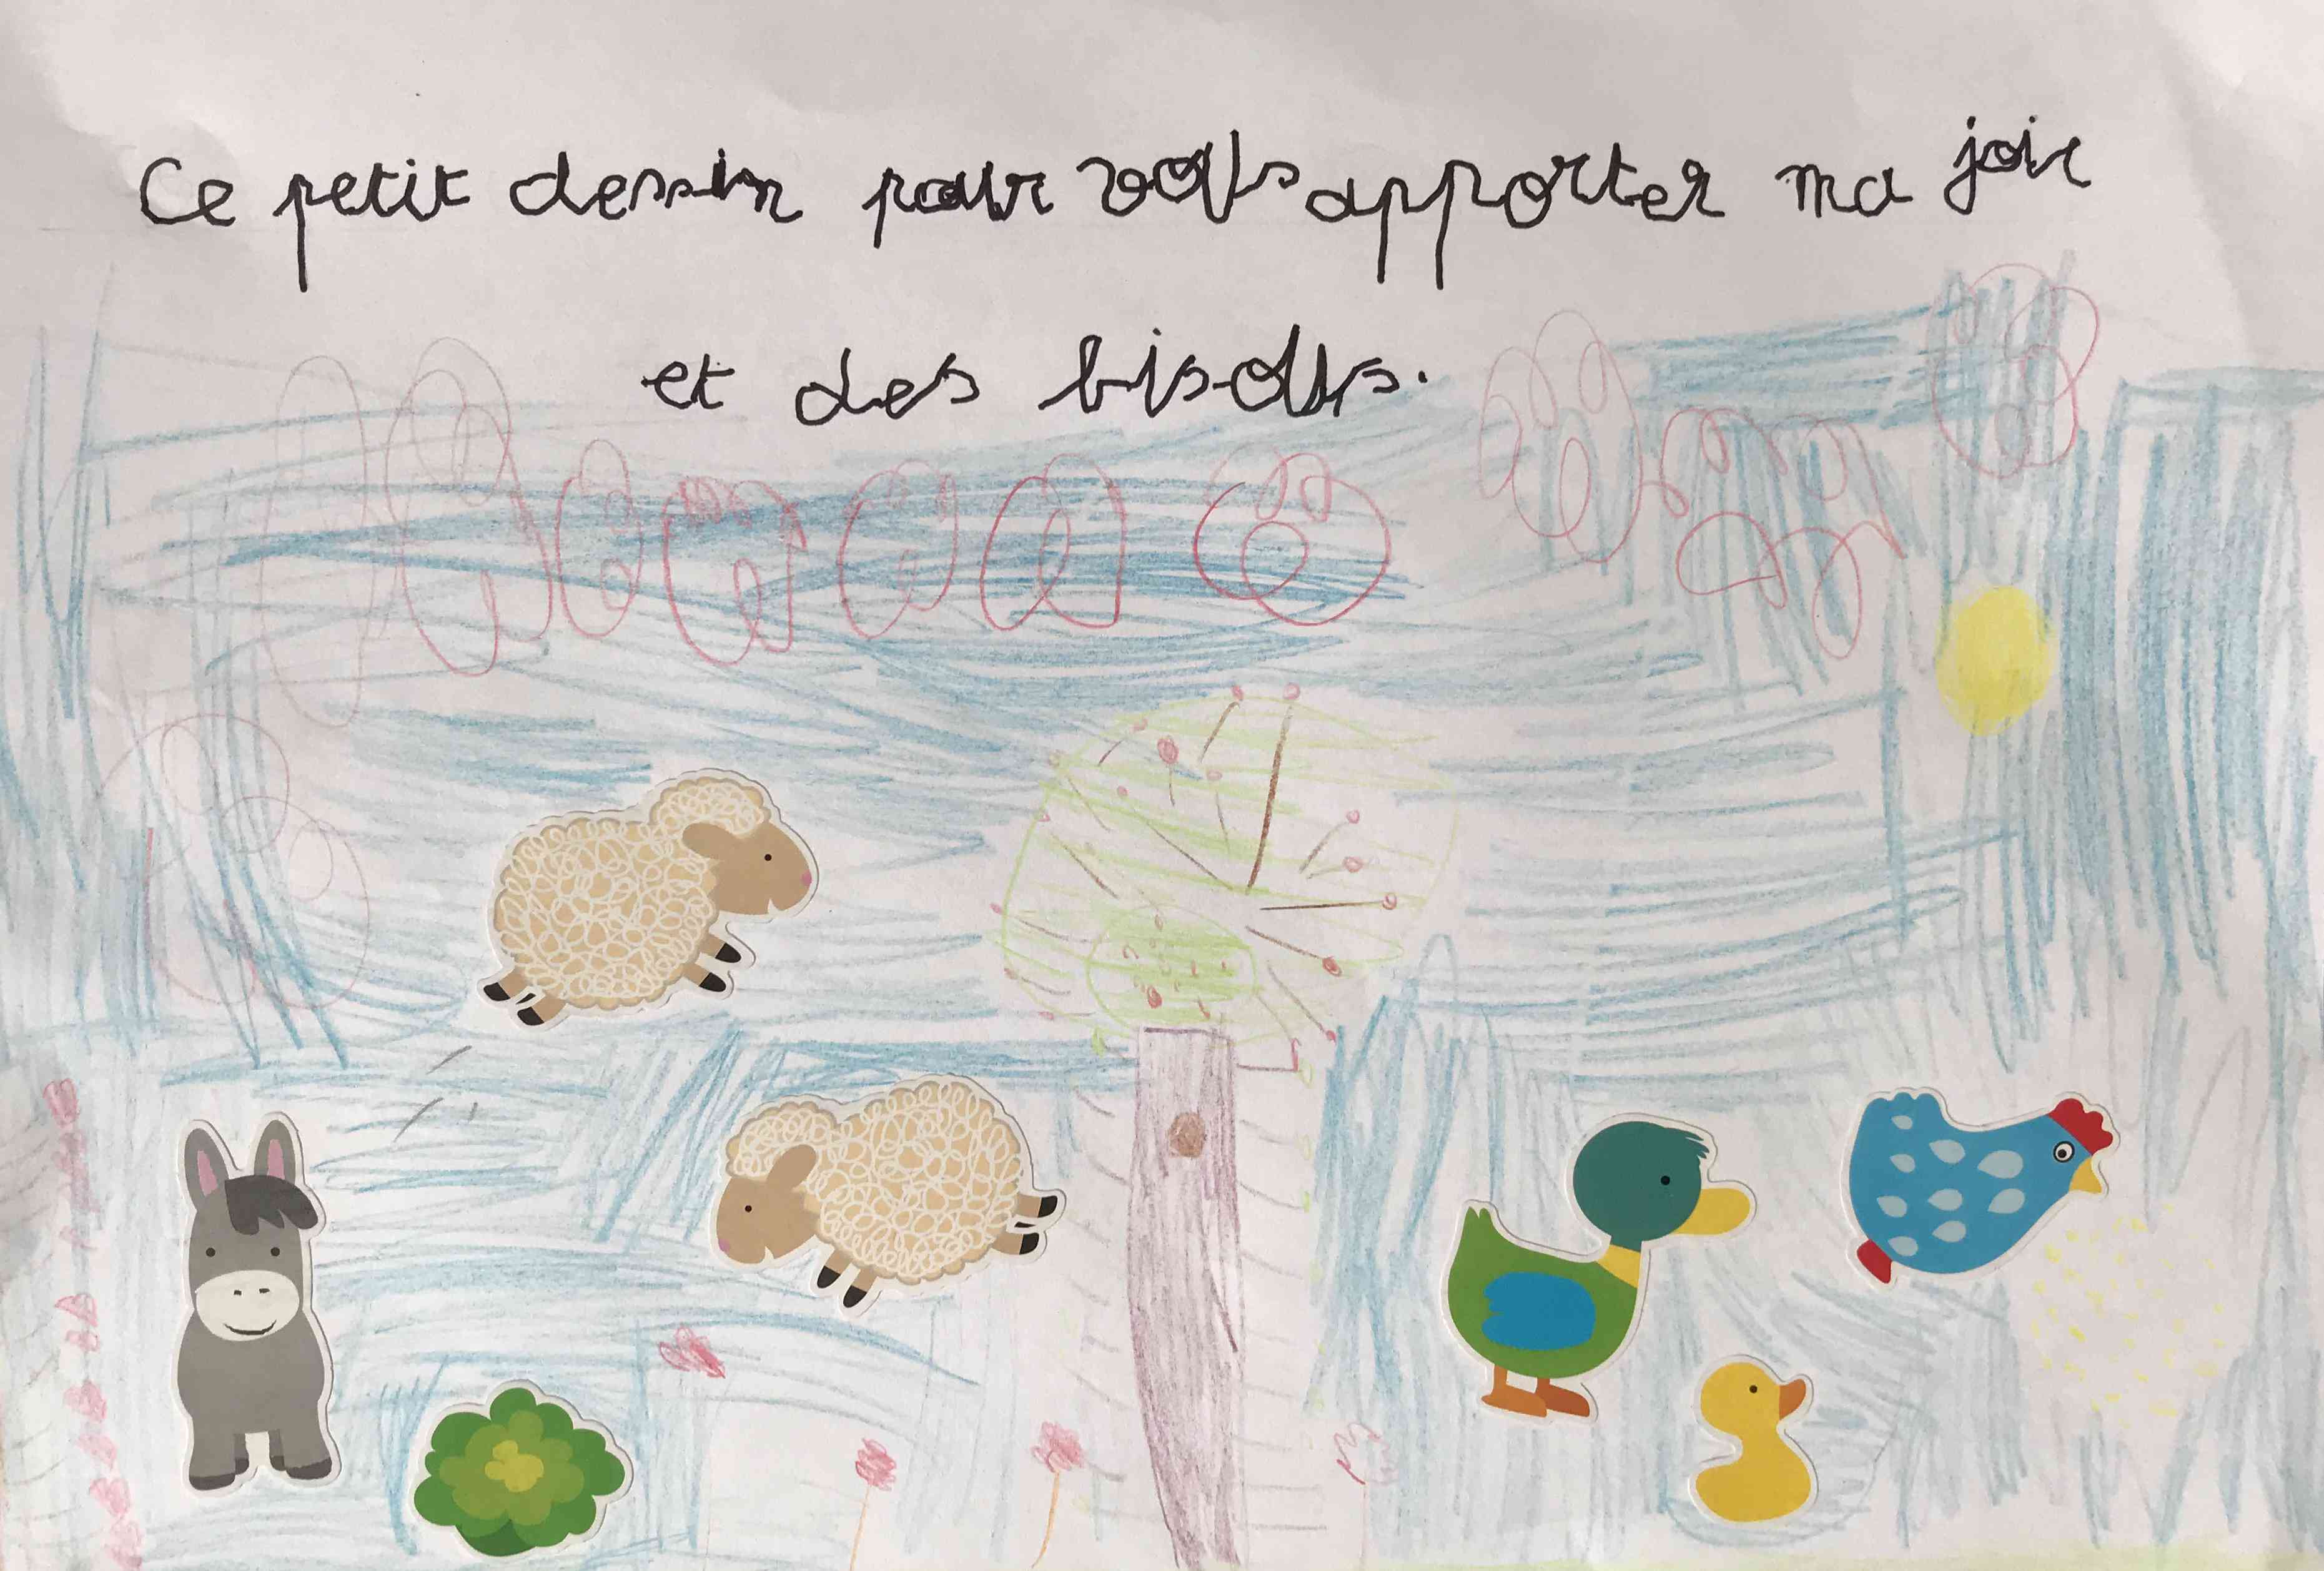 Ce petit dessin pour vous apporter ma joie
et des bisous.